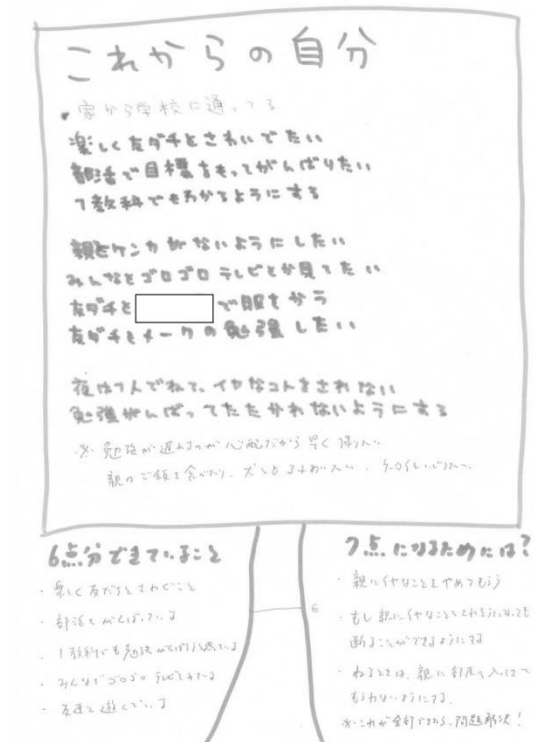 これからの自分
・家から学校に通ってる
楽しく友ダチとさわいでたい
部活で目標をもってがんばりたい
1教科でもわかるようにする
親とケンカがないようにしたい
みんなとゴロゴロテレビとか見てたい
友ダチと で服をかう
友ダチとメークの勉強したい
夜は1人でねて、イヤなコトをされない
勉強がんばってたたかれないようにする
※勉強が遅れるのが心配だから早く帰りたい
親のご飯を食べたり、犬とも
6点分できていること
・楽しく友だちとさわぐこと
・部活もがんばっている
・1教科でも勉強がんばろうと思っている
・みんなでゴロゴロテレビをみてる
・友達と遊んでいる
6
7点になるためには?
・親にイヤなことをやめてもらう
・もし親にイヤなことをされそうになっても
断ることができるようにする
・ねるときは、親に部屋に入って
もらわないようにする。
※これが全部できたら、問題解決!